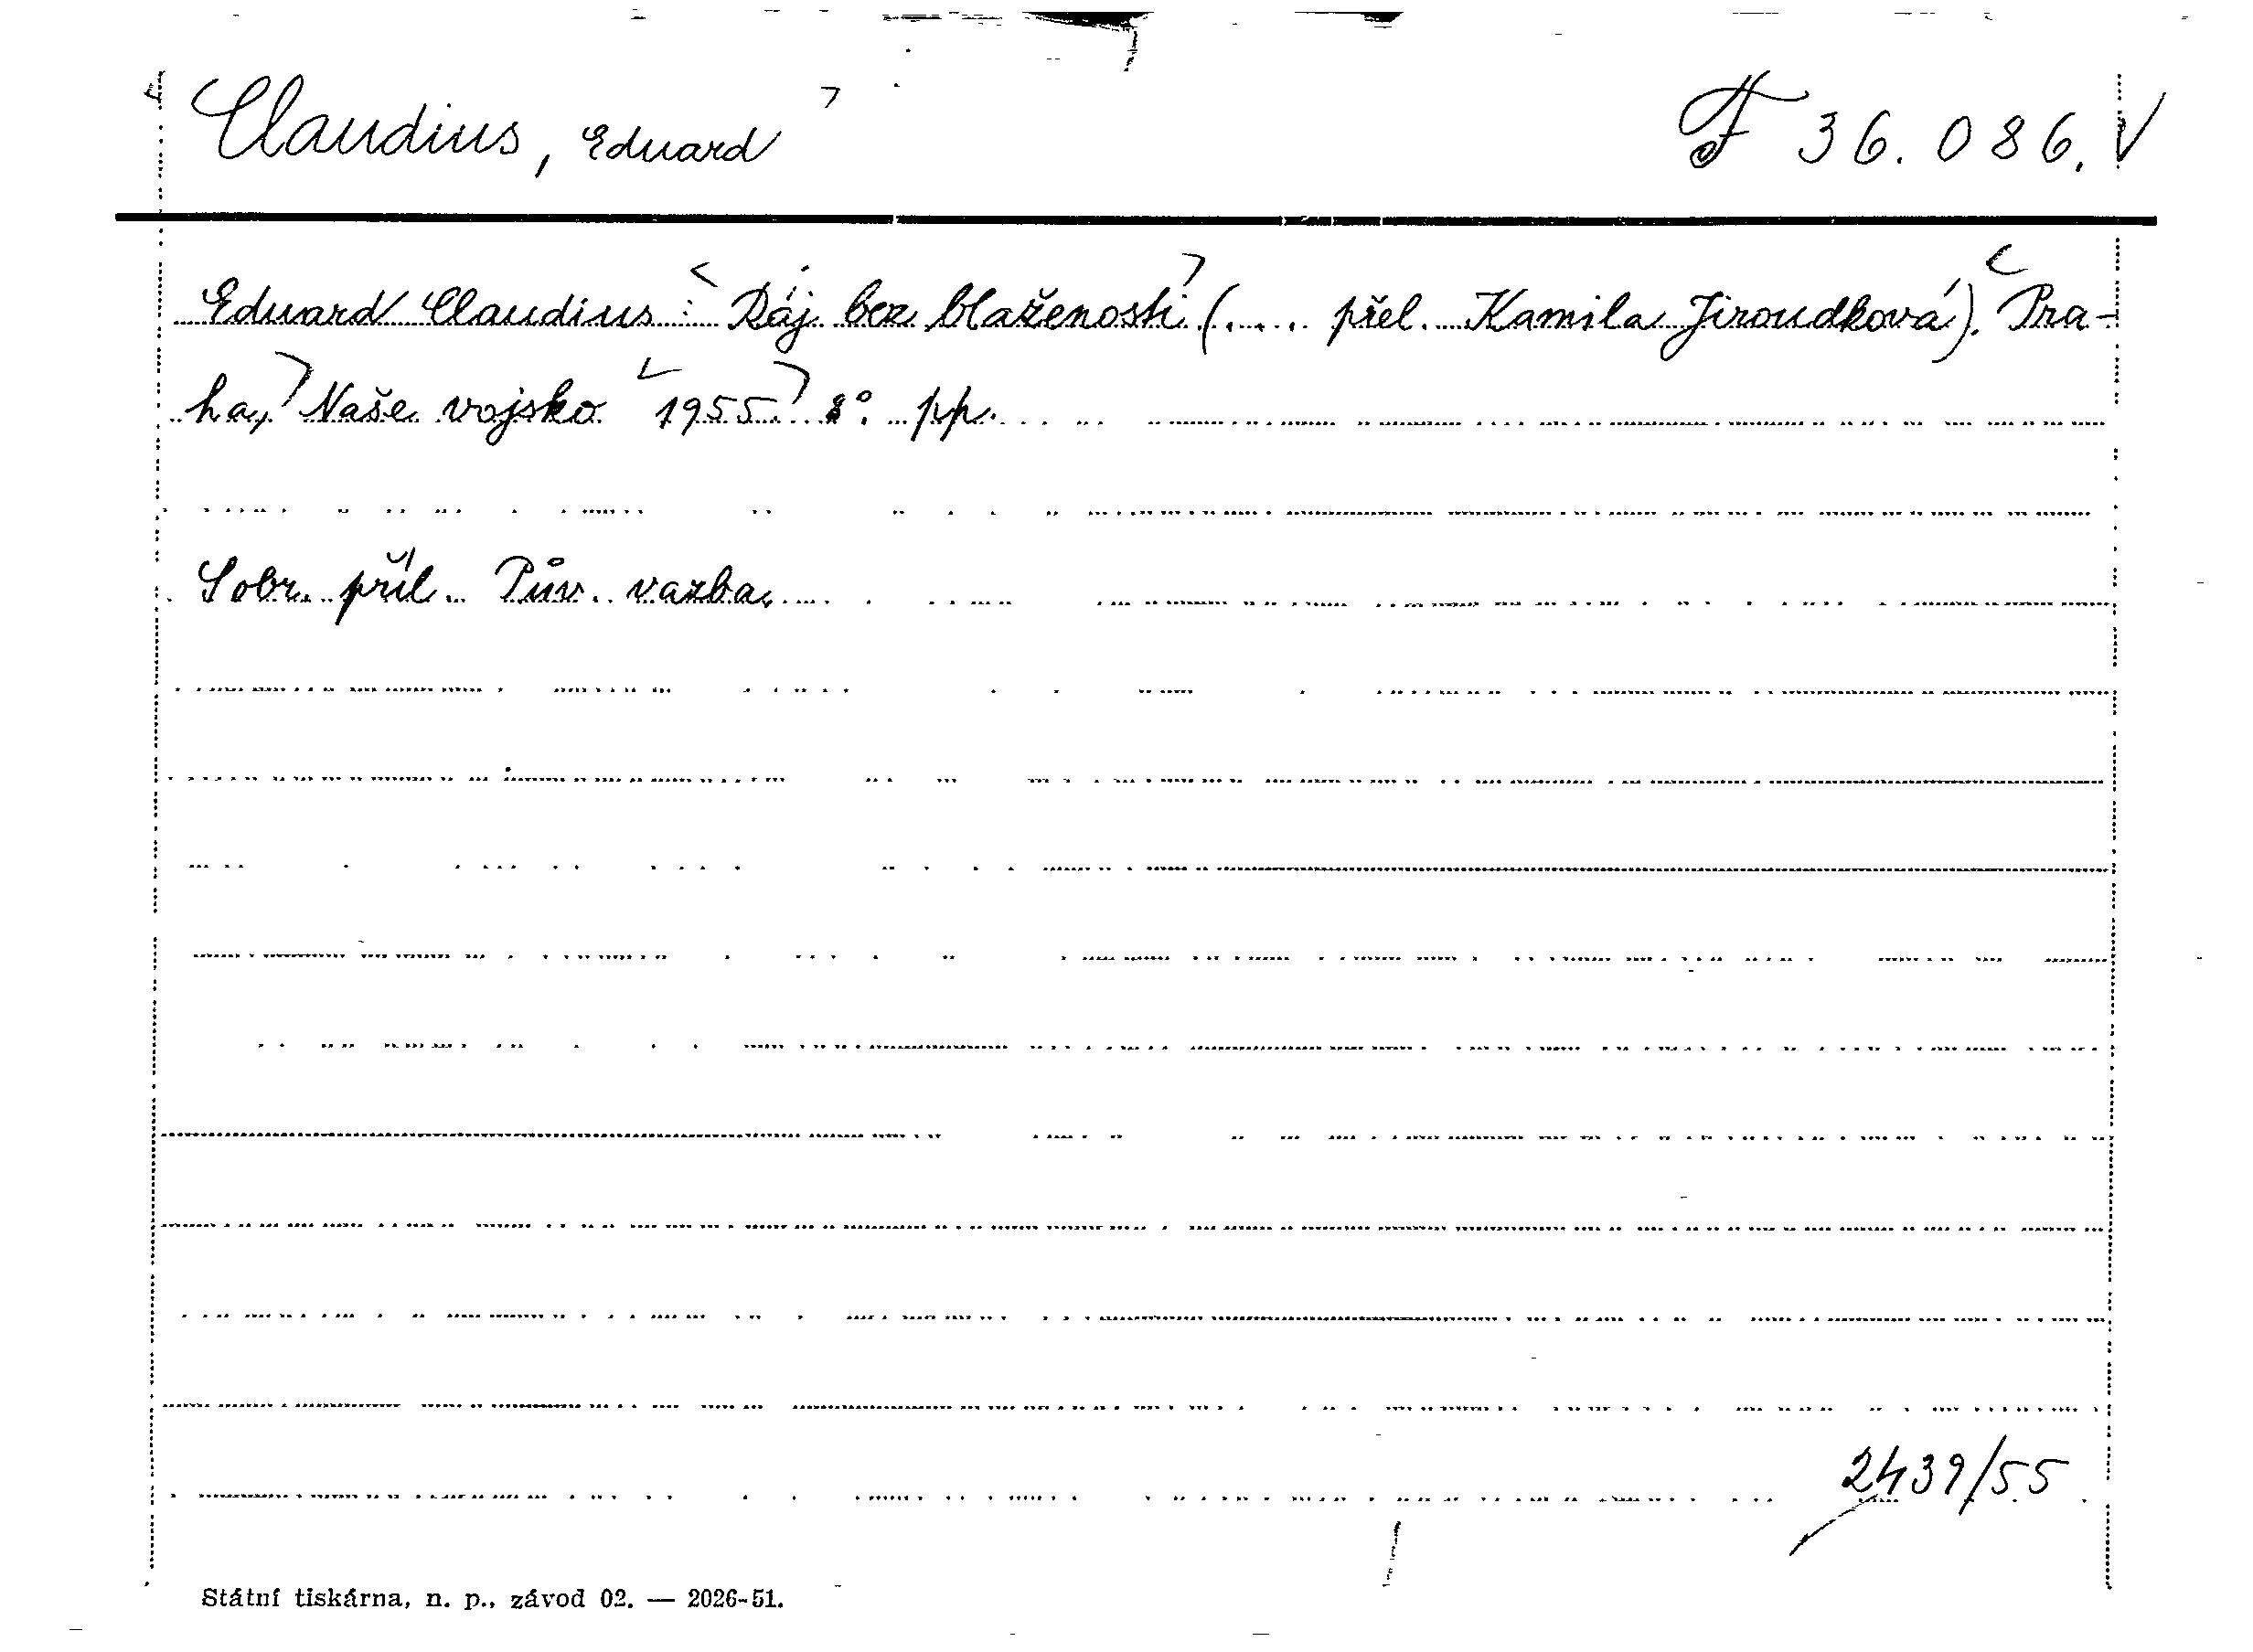 Claudius, Eduard F 36.086.
Eduard Claudius: Ráj bez blaženosti (... přel. Kamila Jiroudková). Pra-
ha, Naše vojsko 1955. 8°. pp.
Sobr. příl. Pův. vazba.
2439/55
Státní tiskárna, n. p., závod 02. — 2026-51.